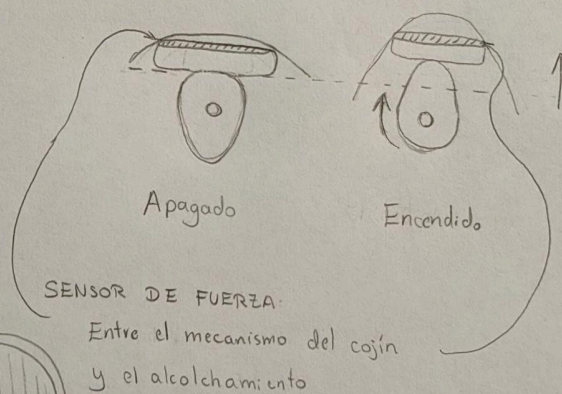 Apagado
Encendido
SENSOR DE FUERZA:
Entre el mecanismo del cojín
y el alcolchamiento